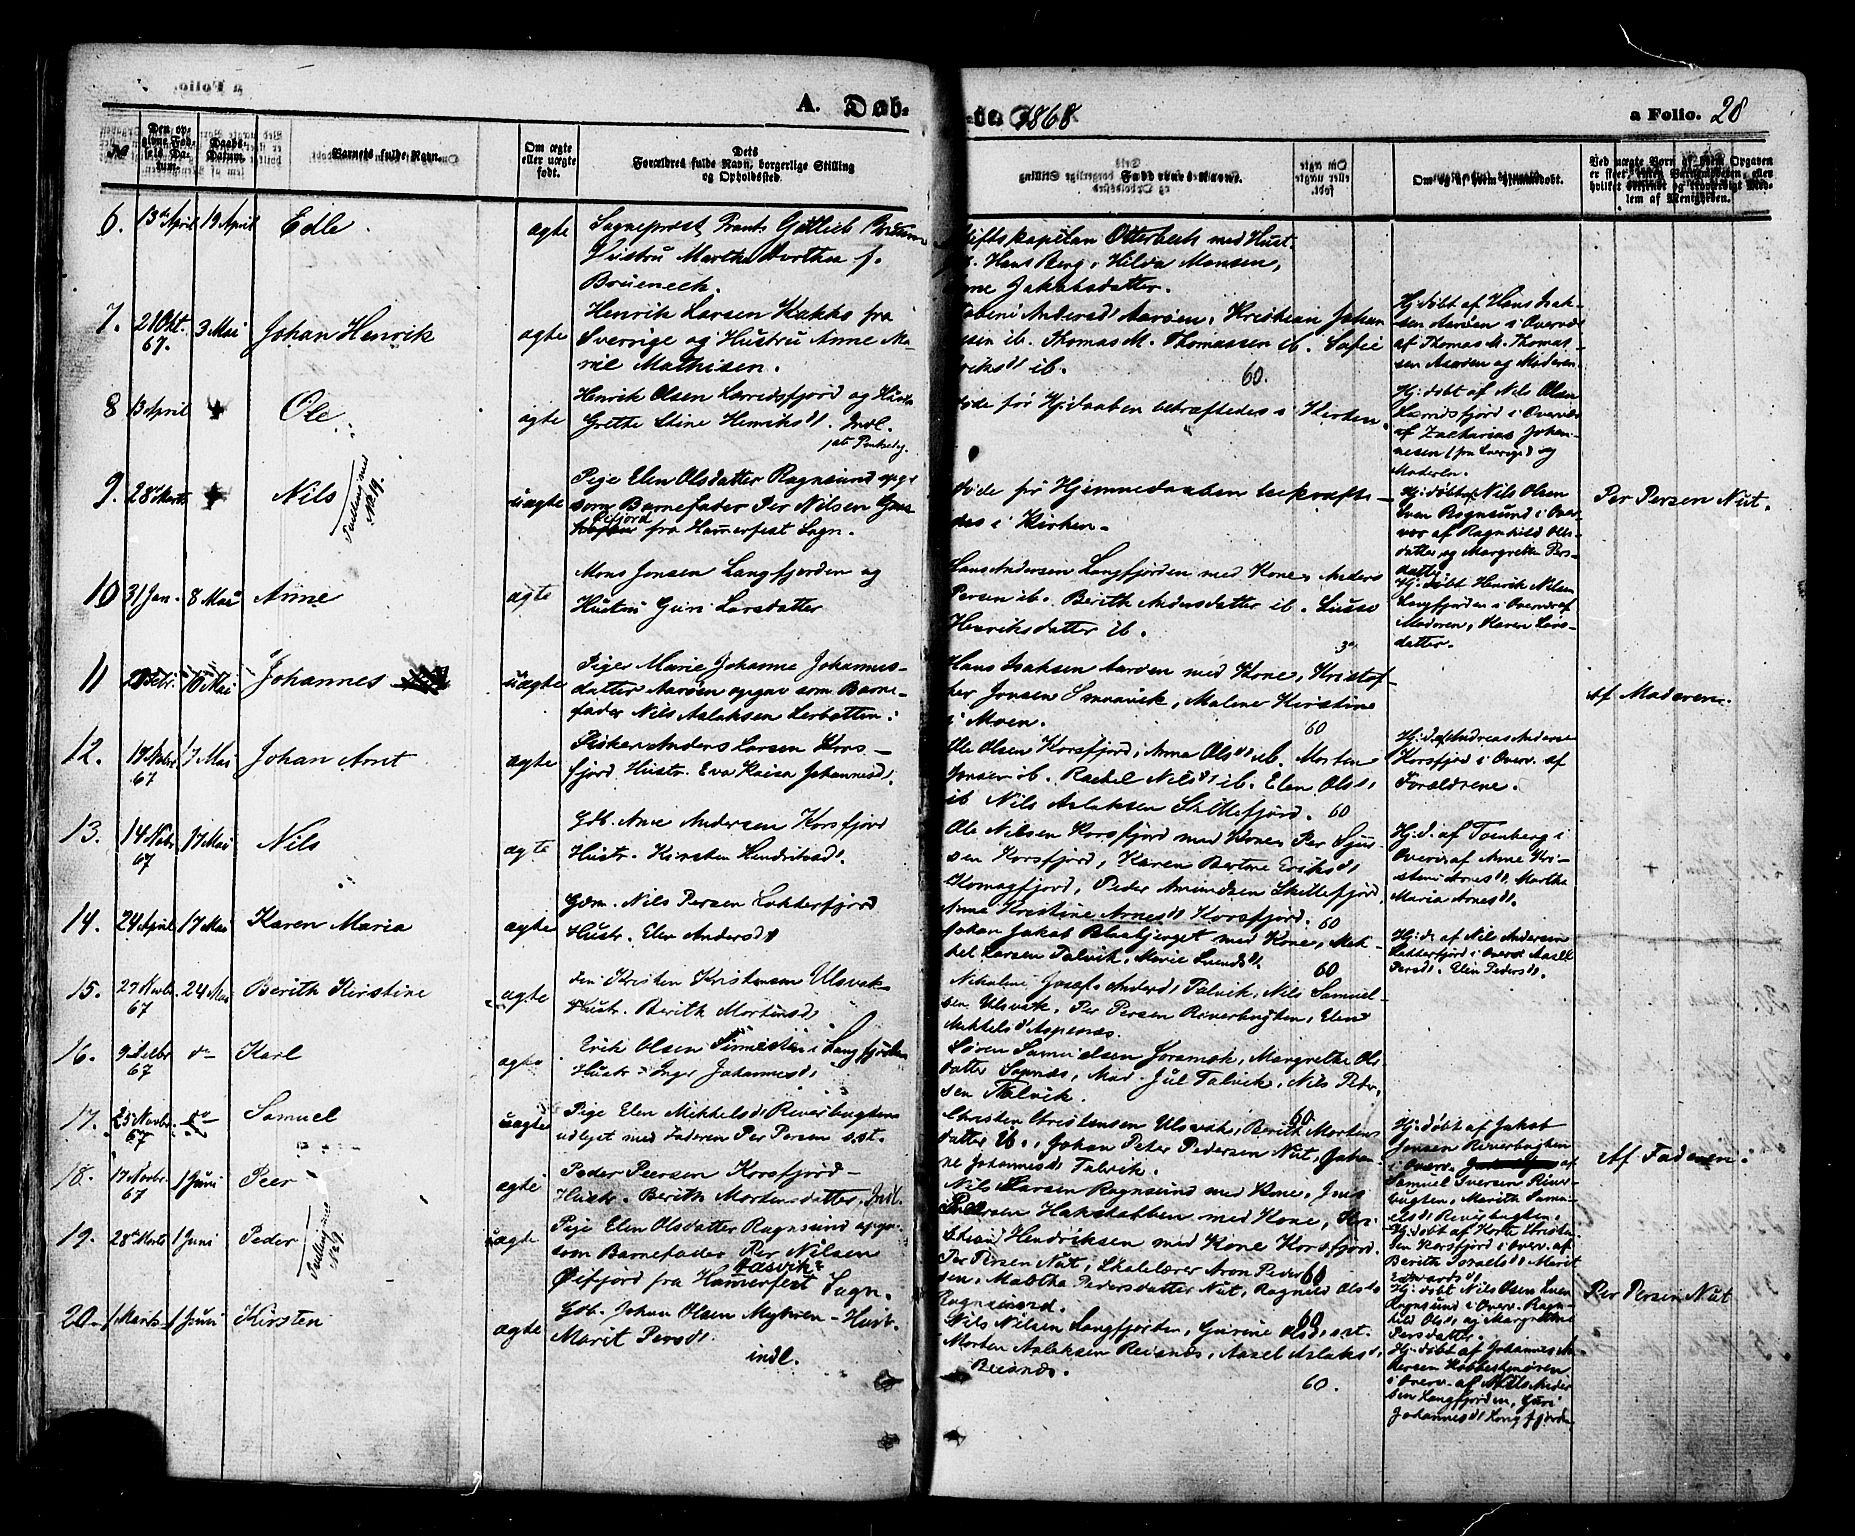 A. Døb-
te. 1868
a Folio. 28
No
Den op-
givne Fød-
sels Da-
tum.
Daabs-
Datum.
Barnets fulde Navn.
Om ægte
eller uægte
født.
Dets
Forældres fulde Navn, borgerlige Stilling
og Opholdssted.
Faddernes Navne.
Om og af hvem hjemmedøbt.
Ved uægte Børn af hvem Opgaven
er skeet, enten Barnemoderen eller
hvilket beslægtet og troværdigt Med-
lem af Menigheden.
6. 13 April 19 April Edle. ægte
Hustru Martha Dorthea f.
Hans Berg, Hilda Monsen,
Jakobsdatter.
7. 21 Okt. 67. 3 Mai Johan Henrik ægte
Henrik Larsen Kakko fra
Sverrige og Hustru Anne Ma-
Mathisen.
Anders d. Aarøen, Kristian Johan
ib. Thomas M. Thomassen ib. Sofie
ib.
60.
Hj: døbt af Hans Isak-
sen Aarøen i Overvær
af Thomas M. Thomas-
sen Aarøen og Moderen.
8 13 April + Ole ægte
Henrik Olsen Lærredsfjord og Hustr
Grethe Stine Henriksd. Indl.
døde før Hj:daaben bekræftedes i Kirken.
Hj: døbt af Nils Olsen
Lærredsfjord i Overvær
af Zacharias Johan-
nesen (fra Sverige) og
Moderen.
9. 28 Marts + Nils Tvilling med No 19. uægte
Pige Elen Olsdatter Rognsund opgi
som Barnefader Per Nilsen
fra Hammerfest Sogn.
døde før Hjemmedaaben bekræfte-
des i Kirken.
Hj: døbt af Nils Olsen
Rognsund i Over-
vær af Ragnhild Ols-
datter og Margrethe Pers-
datter.
Per Persen Nut.
10 31 Jan. 8 Mai Anne ægte
Mons Jonsen Langfjorden og
Hustru Guri Larsdatter
Hans Andersen Langfjorden med Kone, Anders
Persen ib. Berith Andersdatter ib.
Henriksdatter ib.
Hj: døbt Henrik Nilsen
Langfjorden i Overv. af
Moderen, Karen Lars-
datter.
11 Febr. 10 Mai Johannes uægte
Pige Marie Johanne Johannes-
datter Aarøen opgav som Barne-
fader Nils Aslaksen Lerbotten.
Hans Isaksen Aarøen med Kone, Kristof-
fer Jonsen Smaavik, Malene Kirstine
i Moen.
60
Af Moderen.
12. Novbr 67 17 Mai Johan Arnt ægte
Fisker Anders Larsen Kors-
fjord Hustr. Eva Kaisa Johannesd.
Ole Olsen Korsfjord, Anna Olsd. ib. Morten
Jonsen ib. Rachel Nilsd. ib. Elen Olsd.
ib Nils Aslaksen Skillefjord. 60
Hj: d. af Andreas Anderse
Korsfjord i Overv. af
Forældrene.
13. 14 Novbr 67 17 Mai Nils ægte
Gdb. Arne Andersen Korsfjord
Hustr. Kirsten
Ole Nilsen Korsfjord med Kone, Per
sen Korsfjord, Karen Bertine Eriksd.
Komagfjord, Peder Amundsen Skillefjord,
Anna Kristine Arnesd. Korsfjord. 60
Hj: d. af Tornberg i
Overv. af Anne Kri-
stine Arnesd. Martha
Maria Arnesd.
14. 24 April 17 Mai Karen Maria ægte
Gdm. Nils Persen Lokkerfjord
Hustr. Elen Andersd.
Johan Jakob Blaabjerget med Kone, Mik-
kel Larsen Talvik, Marie
60
Hj: d. af Nils Andersen
Lokkerfjord i Overv. Aasel
Persd. Elen Pedersd.
15. 27 Novbr 67 24 Mai Berith Kirstine ægte
Kristen Kristensen Ulsvak
Hustr. Berith Mortensd.
Nikoline Josefs Andersd. Talvik, Nils Samuel-
sen Ulsvak, Per Persen Riverbugten, Elen
Mikkelsd. Aspenæs.
16. 67 do Karl ægte
Erik Olsen i Langfjorden
Hustr. Inger Johannesd.
Søren Samuelsen Joramok, Margrethe Ols-
datter Sopnæs, Mad. Jul Talvik, Nils Peter-
sen Talvik.
60
17. 25 Novbr. 67 do Samuel uægte
Pige Elen Mikkelsd. Riverbugten
udlagt med Faderen Per Persen sst.
Christen Christensen Ulsvak, Berith Mortens
datter ib., Johan Peter Pedersen Nut, Joha-
ne Johannesd. Talvik.
Hj: døbt af Jakob
Jonsen Riverbugten
i Overv. af
Samuel Iversen River-
bugten, Marith Samu-
elsd. Riverbugten.
Af Faderen.
18. 17 Novbr. 67 1 Juni Peer ægte
Peder Peersen Korsfjord -
Hustr. Berith Mortensdatter. Indl.
Nils Larsen Rognsund med Kone, Jens
Pedersen Hakstabben med Kone, Kri-
stian Hendriksen med Kone Korsfjord.
60
Hj: døbt af Korte Kristen-
sen Korsfjord i Overv. af
Berith Israelsd. Marit
Edvardsd.
19. 28 Marts 1 Juni Peder Tvilling med No 9. uægte
Pige Elen Olsdatter Rognsund opga.
som Barnefader Per Nilsen
Øifjord fra Hammerfest Sogn.
Per Persen Nut, Skolelærer Aron Peder
sen, Maktha Pedersdatter Nut, Ragnild Olsd.
Rognsund.
60
Hj: døbt Nils Olsen
Rognsund i Overv. Ragn-
hild Olsd. og Margrethe
Persdatter.
Per Persen Nut
20. 1 Marts 1 Juni Kirsten ægte
Gdb. Johan Olsen Myhren - Hust.
Marit Persd.
indl.
Nils Nilsen Langfjorden, Gurine Olsd. sst.
Morten Aslaksen Reisnæs, Aasel Aslaksd.
Reisnæs.
60.
Hj: døbt af Johannes An-
dersen
i Overv. af Nils Ander
sen Langfjorden, Guri
Johannesd. Langfjorden